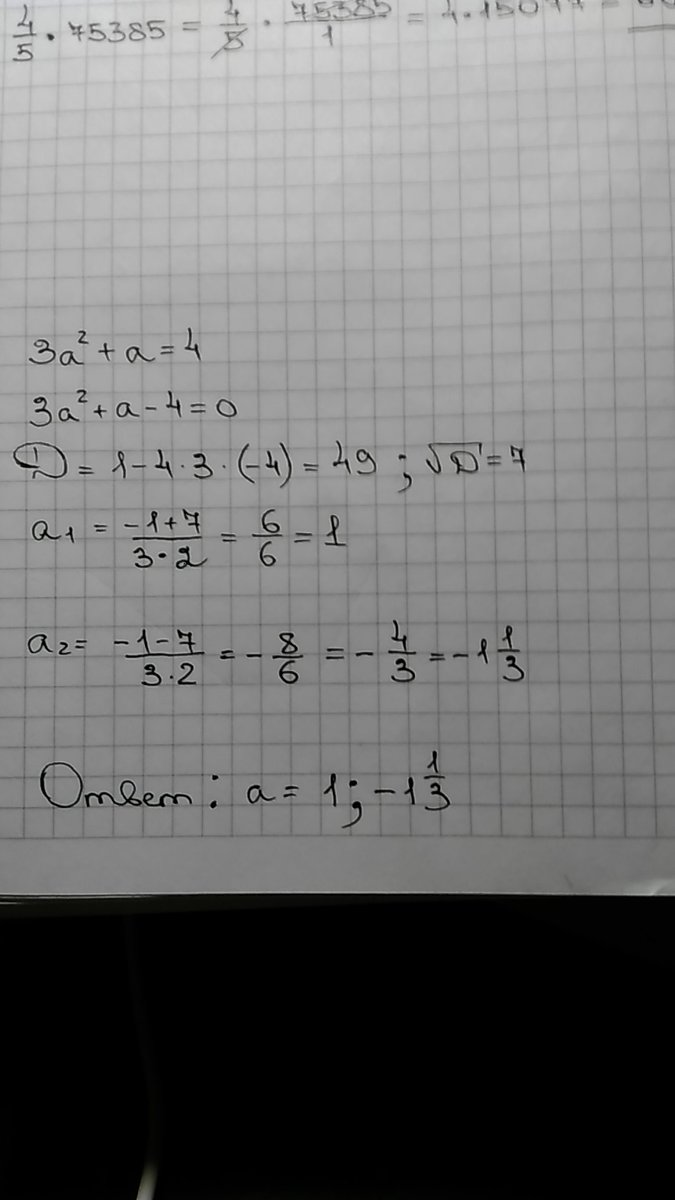 4/5 · 75385 = 4/5 · 75385/1 = 4·150
3a² + a = 4
3a² + a - 4 = 0
D = 1 - 4·3·(-4) = 49 ; √D = 7
a₁ = (-1+7)/(3·2) = 6/6 = 1
a₂ = (-1-7)/(3·2) = -8/6 = -4/3 = -1 1/3
Ответ: a = 1; -1 1/3